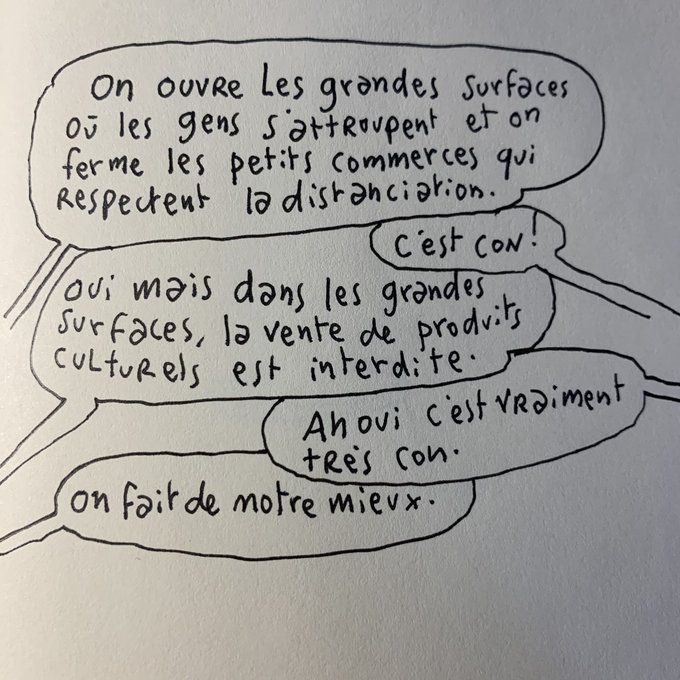 On ouvre les grandes surfaces
où les gens s'attroupent et on
ferme les petits commerces qui
respectent la distanciation.
c'est con!
oui mais dans les grandes
surfaces, la vente de produits
culturels est interdite.
Ah oui c'est vraiment
très con.
on fait de notre mieux.